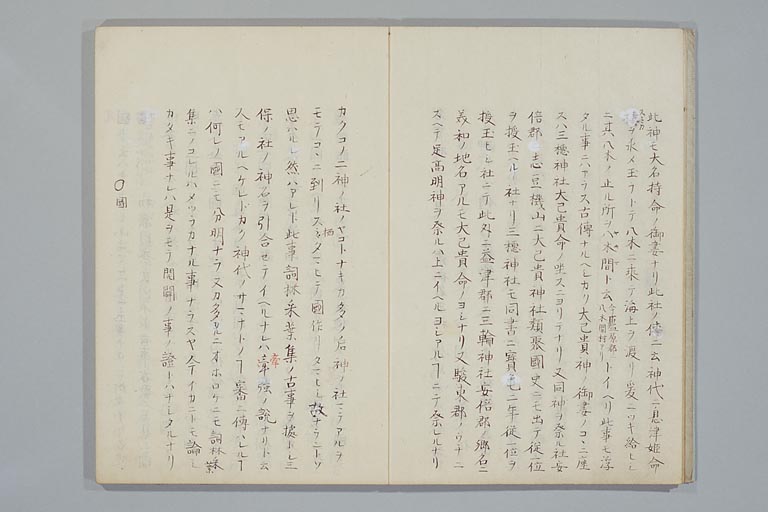 此神モ大名持命ノ御妻ナリ此社ノ傳ニ云神代ニ息津姫命
ヲ求メ玉フトテ八木ニ乘テ海上ヲ渡リ爰ニツキ給ヒシ
ニ其八木ノ止ル所ヲ八木間ト云今廬原郡八木間村アリトイヘリ此事モ浮
タル事ニハアラス古傳ナルヘシカリ大己貴神ノ御妻ノコヽニ座
スハ三穂神社大己貴命ノ坐スニヨリテナリ又同神ヲ祭ル社安
倍郡志豆機山ニ大己貴神社類聚國史ニモ出テ從一位
ヲ授玉ヘル社ナリ三穂神社モ同書ニ寳亀二年從一位ヲ
授玉ヒシ社ニテ此外ニ益津郡ニ三輪神社安倍郡ノ郷名ニ
美和ノ地名アルモ大己貴命ノヨシナリ又駿東郡ノウチニ
スヘテ足高明神ヲ祭ルハ上ニイヘルヨシアルフニテ祭レルナリ
カクコノ二神ノ社ノヤコトナキカ多ク名神ノ社ニテアルヲ
モテコヽニ到リスミタマヒテ國作リタマヒシ故ナラントソ
栖
思ハルレ然ハアレト此事詞林采葉集ノ古事ヲ據トシ三
保ノ社ノ神石ヲ引合セテイヘルナレハ牽強ノ説ナリト云
牽
人モアルヘケレトカク神代ノサマナトノフ審ニ傳ハレルフ
ハ何レノ國ニモ分明ナラス又カタルニオホロケニモ詞林采葉
集ニノコレルハメツラカナル事ナラスヤ今イカニトモ論シ
カタキ事ナレハ是ヲモテ開闢ノ事ノ證トハナシタルナリ
〇國